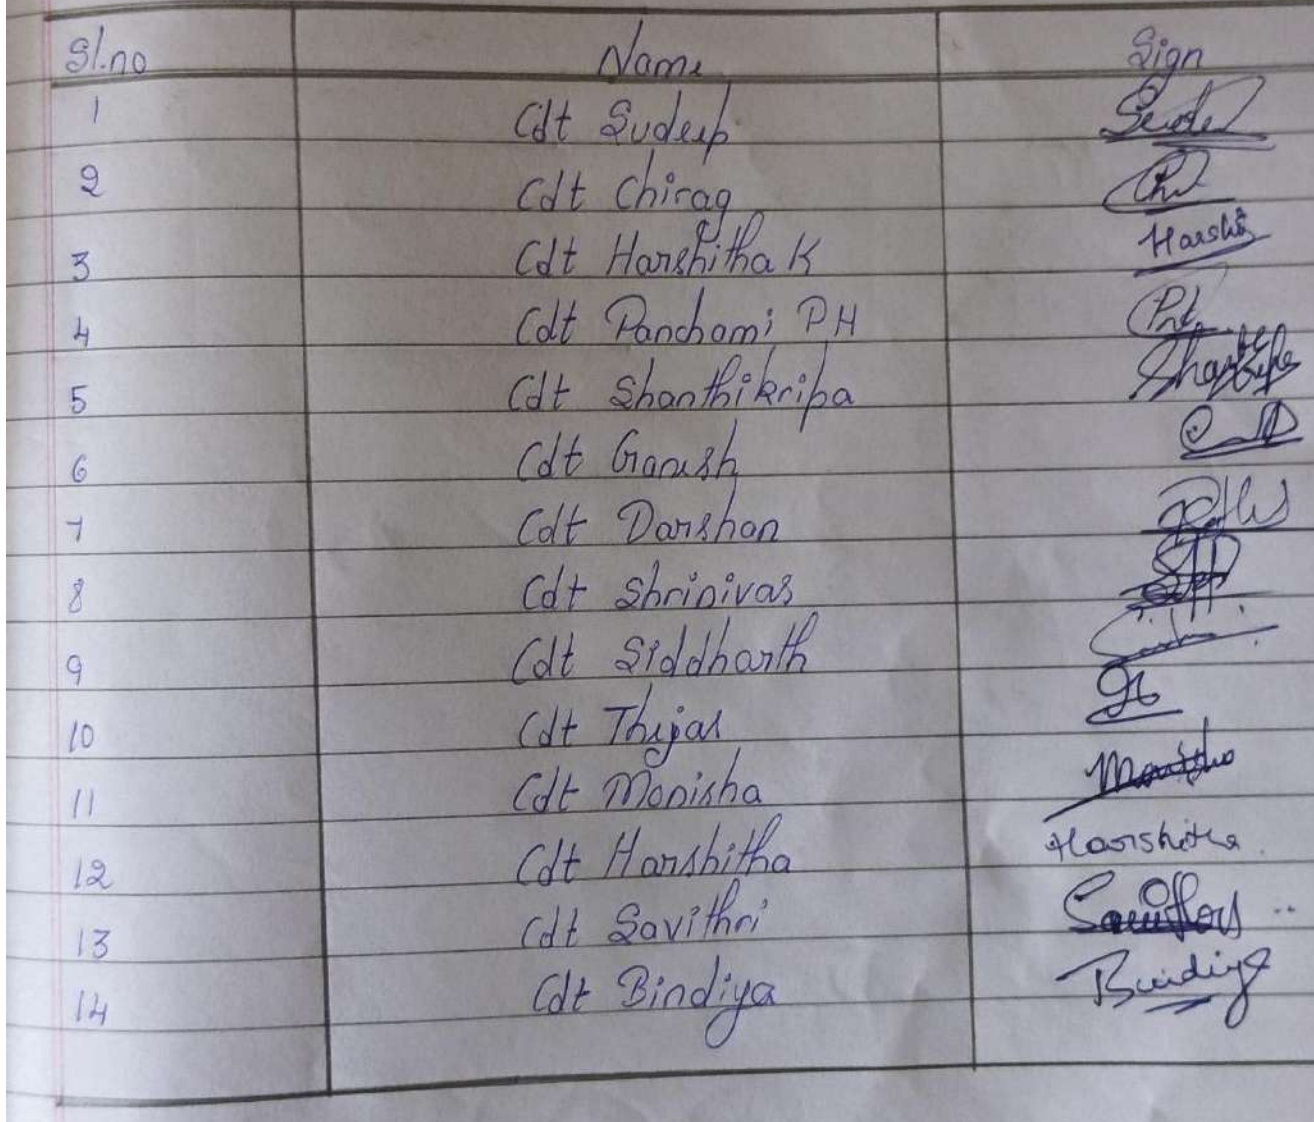 Sl.no Name Sign
1 Cdt Sudeep
2 Cdt Chirag
3 Cdt Harshitha K Harshi
4 Cdt Panchami P H
5 Cdt Shanthikripa
6 Cdt Ganesh
7 Cdt Darshan
8 Cdt Shrinivas
9 Cdt Siddharth
10 Cdt Thejas
11 Cdt Monisha
12 Cdt Harshitha Harshitha
13 Cdt Savithri
14 Cdt Bindiya Bindiya